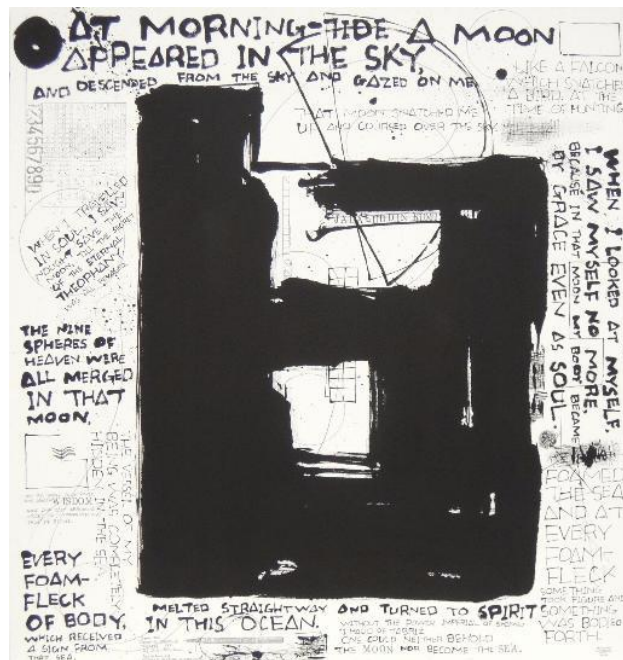 AT MORNING-TIDE A MOON
APPEARED IN THE SKY,
AND DESCENDED FROM THE SKY AND GAZED ON ME.
LIKE A FALCON
WHICH SNATCHES
A BIRD AT THE
TIME OF HUNTING
THAT MOON SNATCHED ME
UP AND COURSED OVER THE SKY
1234567890
WHEN I LOOKED AT MYSELF,
I SAW MYSELF NO MORE.
BECAUSE IN THAT MOON MY BODY BECAME
BY GRACE EVEN AS SOUL.
WHEN I TRAVELLED
IN SOUL, I SAW
NOUGHT SAVE THE
MOON, TILL THE SECRET
OF THE ETERNAL
THEOPHANY
WAS ALL
THE NINE
SPHERES OF
HEAVEN WERE
ALL MERGED
IN THAT
MOON,
THE VESSEL OF MY
BEING WAS COMPLETELY
HIDDEN IN THE SEA.
WISDOM
FOAMED
THE SEA
AND AT
EVERY
FOAM-
FLECK
SOMETHING
TOOK FIGURE AND
SOMETHING
WAS BODIED
FORTH.
EVERY
FOAM-
FLECK
OF BODY,
WHICH RECEIVED
A SIGN FROM
THAT SEA,
MELTED STRAIGHTWAY
IN THIS OCEAN.
AND TURNED TO SPIRIT
WITHOUT THE POWER IMPERIAL OF
OF TABRIZ
ONE COULD NEITHER BEHOLD
THE MOON NOR BECOME THE SEA.